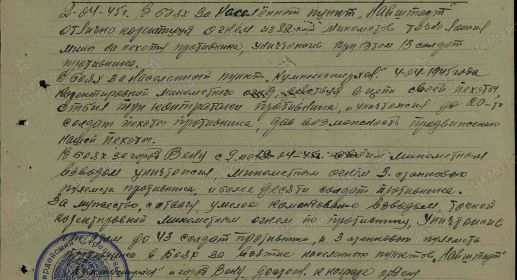 2-04-45г. В боях за населённый пункт "Найштадт"
отлично коректируя огнем из 82 м/м минометов точно ложил
мины на пехоту противника, уничтожив при этом 13 солдат
противника.
В боях за населенный пункт 4-04-1945 года
коректировкой минометного огня, действуя в цепи своей пехоты,
отбил три контратаки противника, и уничтожил до 20-ти
солдат пехоты противника, дав возможность продвижению
нашей пехоты.
В боях за город Вену с 9 04-45г. минометным
взводом уничтожил, минометным огнём 3 станковых
пулемета противника, и более десяти солдат противника.
За мужество, и отвагу, умелое командование взводом, точной
коректировкой минометным огнем по противнику, уничтожив
до 43 солдат противника, и 3 станковых пулемета
в боях за взятие населенного пунктов, "Найштадт"
и город Вену, достоин, к награде ордену